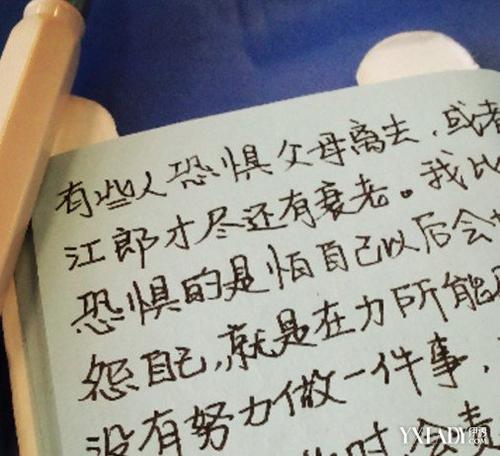 有些人恐惧父母离去，或者
江郎才尽还有衰老。我比
恐惧的是怕自己以后会
怨自己，就是在力所能
没有努力做一件事，
时，会责
YXLADY伊秀
.COM